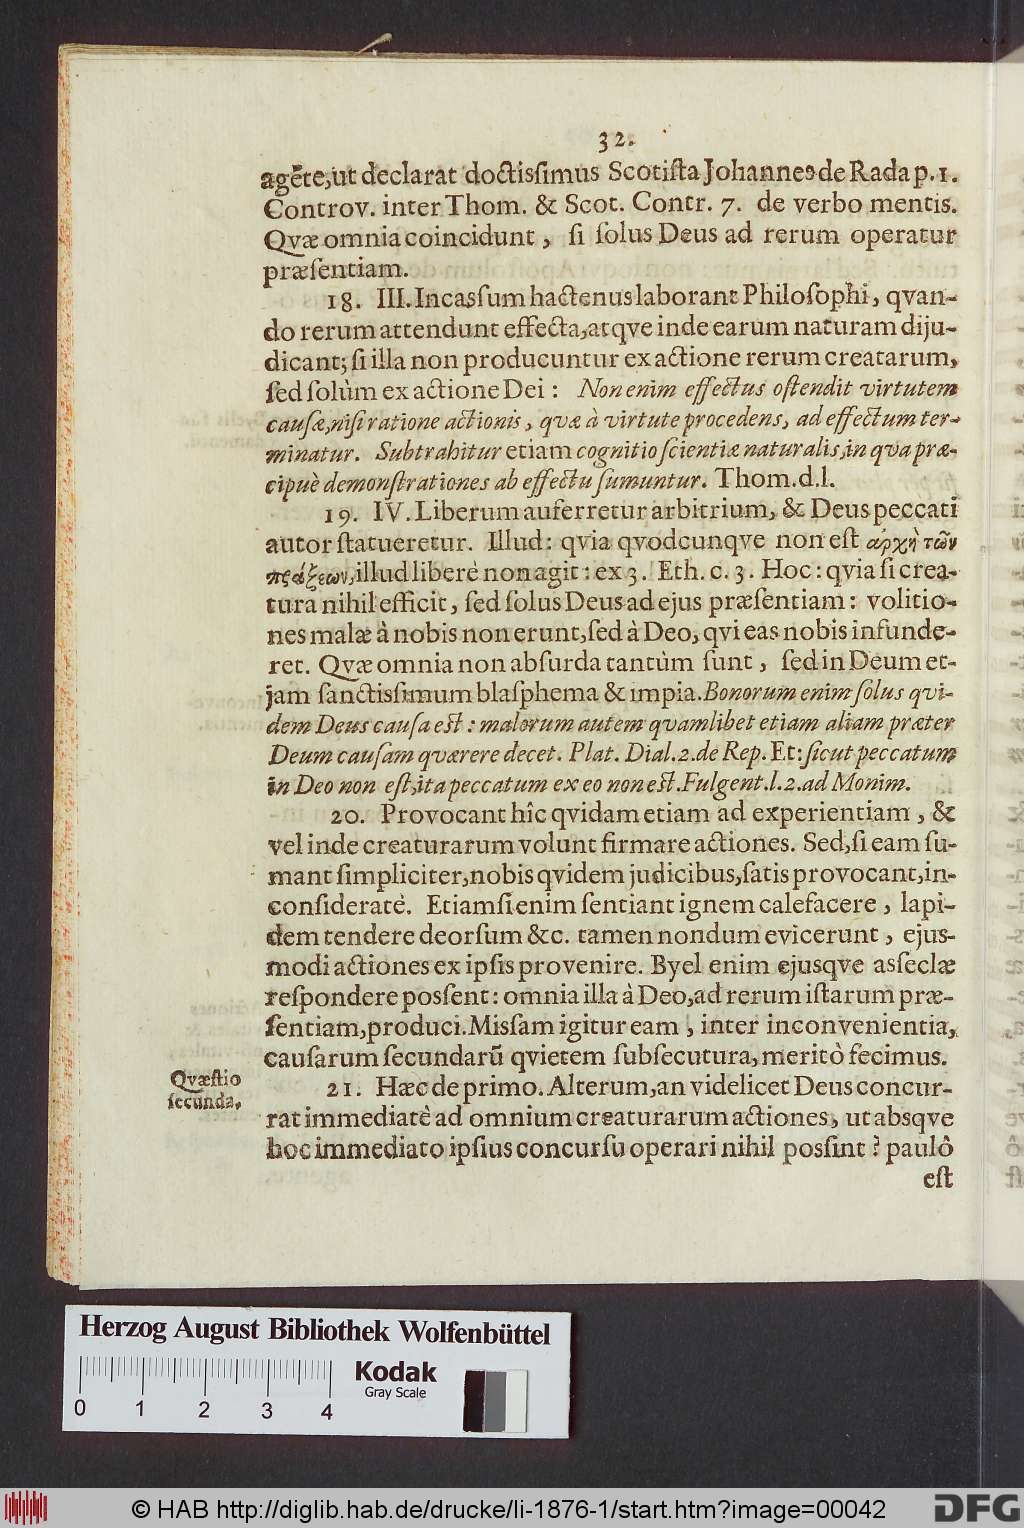 32.
agēte, ut declarat doctiſſimus Scotiſta Johannes de Rada p. 1.
Controv. inter Thom. & Scot. Contr. 7. de verbo mentis.
Qvæ omnia coincidunt, ſi ſolus Deus ad rerum operatur
præſentiam.
18. III. Incaſſum hactenus laborant Philoſophi, qvan-
do rerum attendunt effecta, atqve inde earum naturam diju-
dicant; ſi illa non producuntur ex actione rerum creatarum,
ſed ſolùm ex actione Dei: Non enim effectus oſtendit virtutem
cauſæ, niſi ratione actionis, qvæ à virtute procedens, ad effectum ter-
minatur. Subtrahitur etiam cognitio ſcientiæ naturalis, in qva præ-
cipuè demonſtrationes ab effectu ſumuntur. Thom. d. l.
19. IV. Liberum auferretur arbitrium, & Deus peccati
autor ſtatueretur. Illud: qvia qvodcunqve non eſt ἀρχὴ τῶν
πράξεων, illud liberè non agit: ex 3. Eth. c. 3. Hoc: qvia ſi crea-
tura nihil efficit, ſed ſolus Deus ad ejus præſentiam: volitio-
nes malæ à nobis non erunt, ſed à Deo, qvi eas nobis infunde-
ret. Qvæ omnia non abſurda tantùm ſunt, ſed in Deum et-
jam ſanctiſſimum blaſphema & impia. Bonorum enim ſolus qvi-
dem Deus cauſa eſt: malorum autem qvamlibet etiam aliam præter
Deum cauſam qværere decet. Plat. Dial. 2. de Rep. Et: ſicut peccatum
in Deo non eſt, ita peccatum ex eo non eſt. Fulgent. l. 2. ad Monim.
20. Provocant hîc qvidam etiam ad experientiam, &
vel inde creaturarum volunt firmare actiones. Sed, ſi eam ſu-
mant ſimpliciter, nobis qvidem judicibus, ſatis provocant, in-
conſideratè. Etiamſi enim ſentiant ignem calefacere, lapi-
dem tendere deorſum &c. tamen nondum evicerunt, ejus-
modi actiones ex ipſis provenire. Byel enim ejusqve aſſeclæ
reſpondere poſſent: omnia illa à Deo, ad rerum iſtarum præ-
ſentiam, produci. Miſſam igitur eam, inter inconvenientia,
cauſarum ſecundarū qvietem ſubſecutura, meritò fecimus.
Qvæſtio
ſecunda.
21. Hæc de primo. Alterum, an videlicet Deus concur-
rat immediatè ad omnium creaturarum actiones, ut absqve
hoc immediato ipſius concurſu operari nihil poſſint? paulò
eſt
Herzog August Bibliothek Wolfenbüttel
Kodak
Gray Scale
0 1 2 3 4
© HAB http://diglib.hab.de/drucke/li-1876-1/start.htm?image=00042
DFG